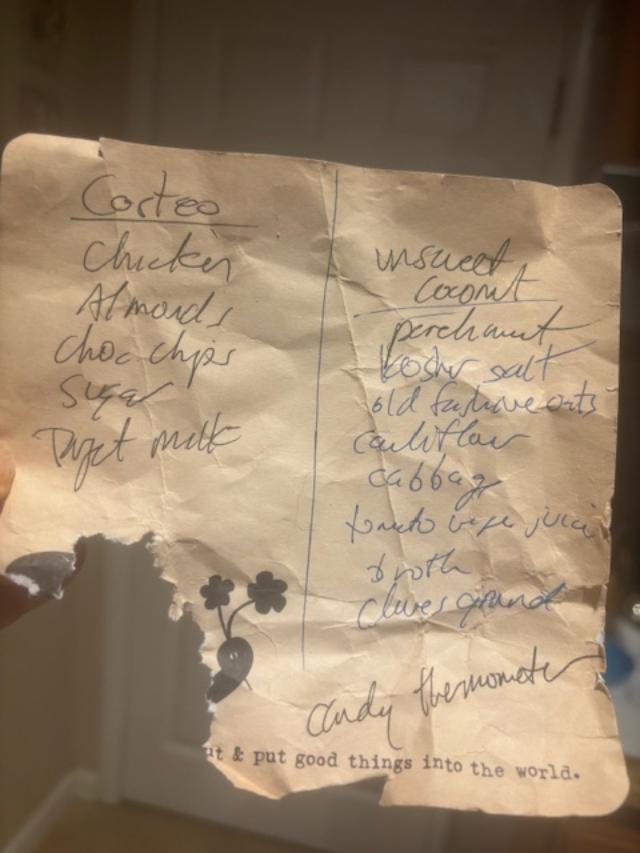 Costco
Chicken
Almonds
choc chips
Sugar
milk
unsweet
coconut
parchment
kosher salt
old fashione oats
cauliflower
cabbage
tomato vege juice
broth
Cloves ground
candy thermometer
ut & put good things into the world.